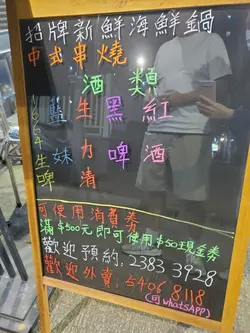 招牌新鮮海鮮鍋
中式串燒
酒類
藍 生 黑 紅
妹 力 啤 酒
清
1664
生
啤
可使用消費券
滿$300元即可使用$50現金券
歡迎預約:2383 3928
歡迎外賣:5406 8118
(可whatsAPP)